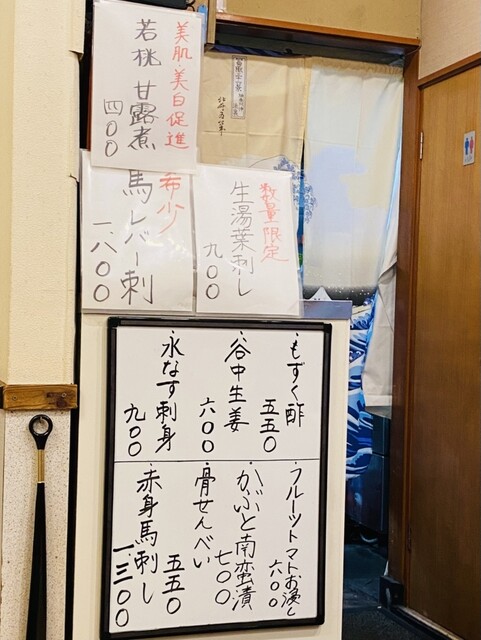 美肌・美白促進
若桃 甘露煮
四〇〇
希少
馬レバー刺
一、八〇〇
数量限定
生湯葉刺し
九〇〇
・もずく酢
五五〇
・谷中生姜
六〇〇
・水なす刺身
九〇〇
・フルーツトマトお浸し
六〇〇
・かぶと南蛮漬
七〇〇
・骨せんべい
五五〇
・赤身馬刺し
一、三〇〇